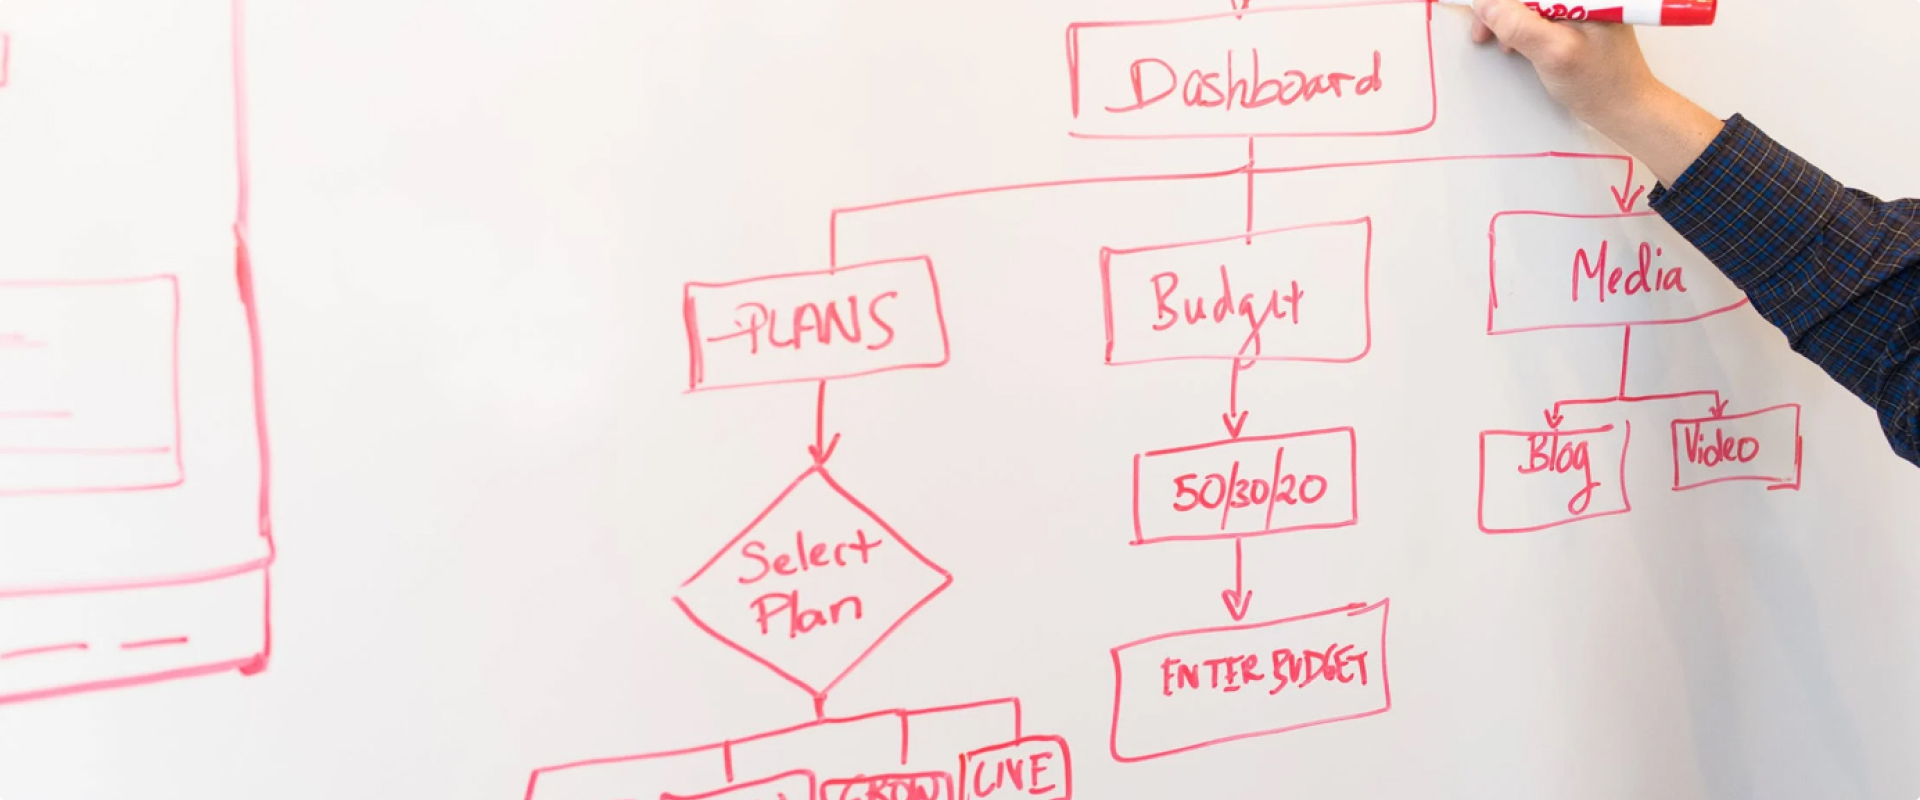 EXPO
Dashboard
PLANS
Budget
Media
Select
Plan
50/30/20
Blog
Video
ENTER BUDGET
GROW
LIVE